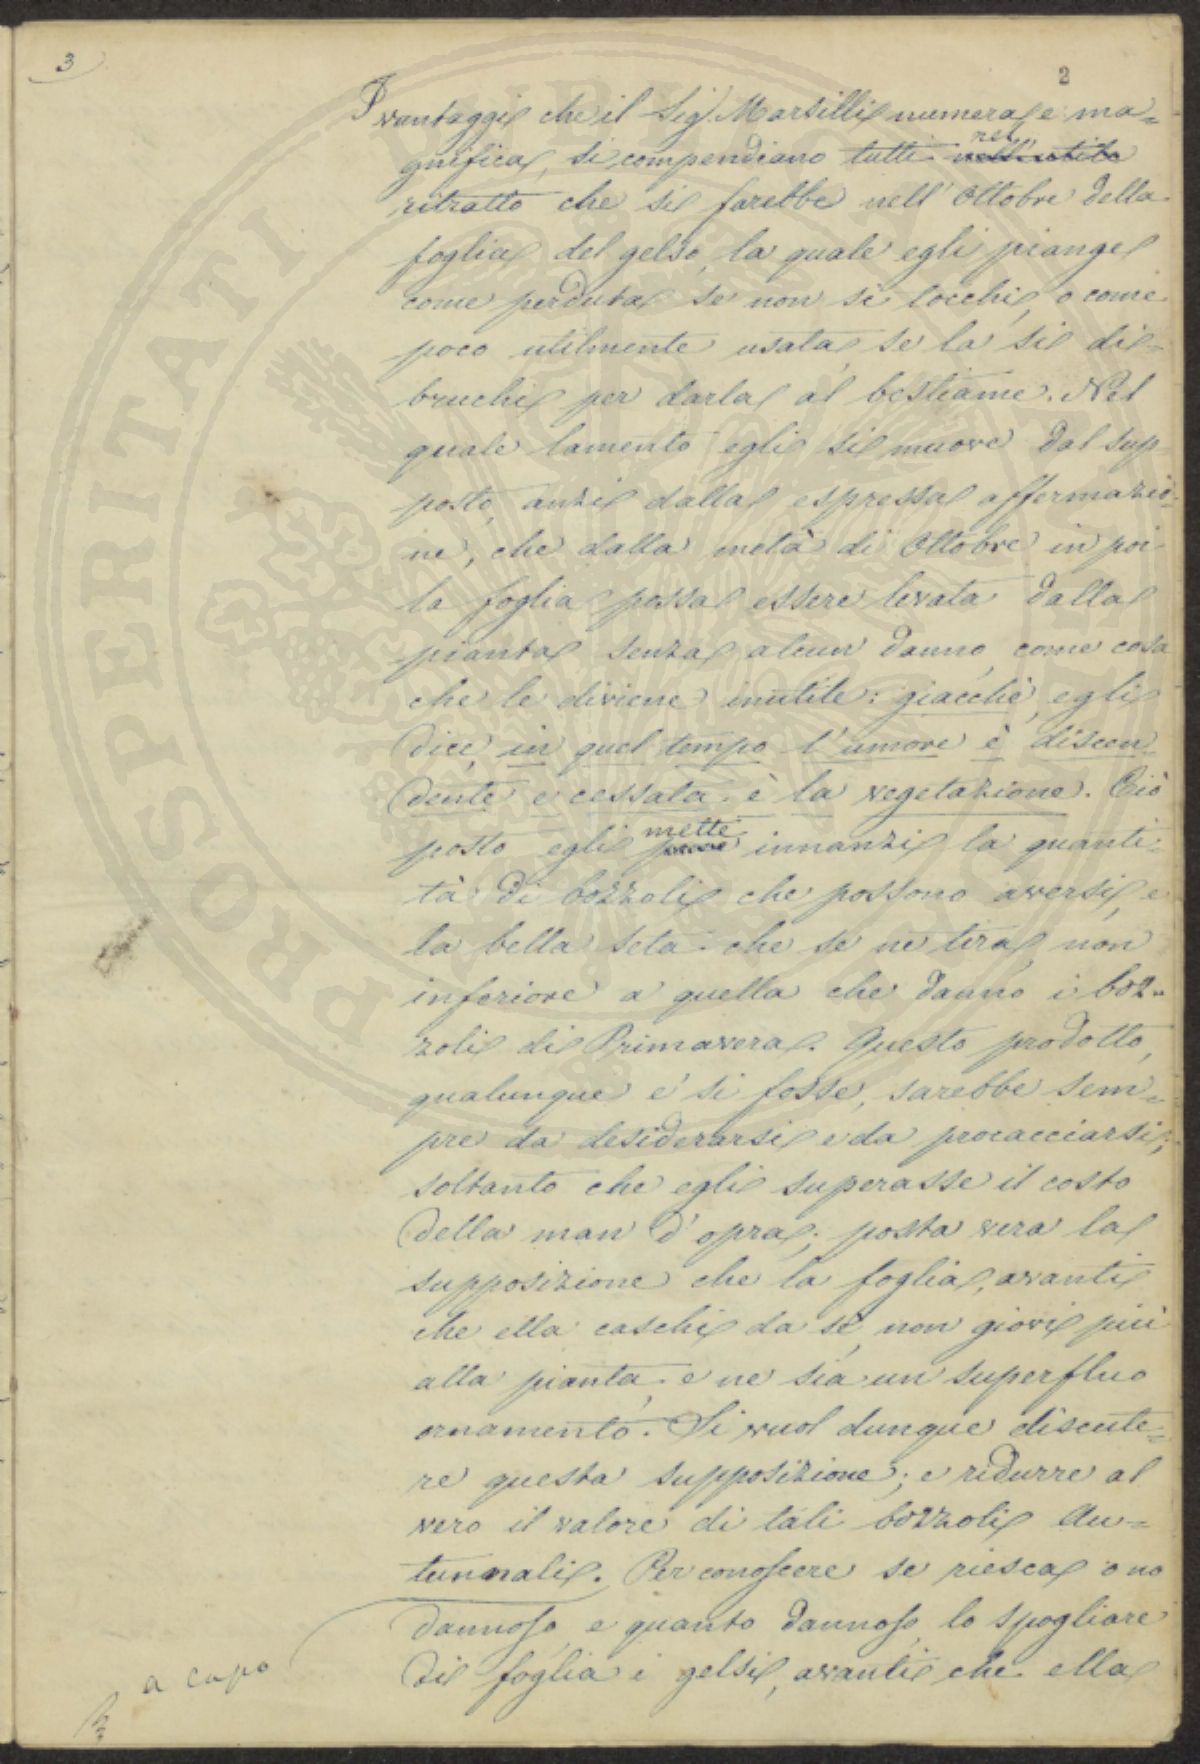 3
2
I vantaggi che il Sig. Marsilli numera e ma=
gnifica, si compendiano tutti nel nell'utile
ritratto che si farebbe nell'Ottobre della
foglia del gelso, la quale egli piange
come perduta se non si tocchi, o come
poco utilmente usata, se la si di=
bruchi per darla al bestiame. Nel
quale lamento egli si muove dal sup=
posto, anzi dalla espressa affermazio=
ne, che dalla metà di Ottobre in poi
la foglia possa essere levata dalla
pianta senza alcun danno, come cosa
che le diviene inutile: giacchè, egli
dice, in quel tempo l'umore è discen=
dente e cessata è la vegetazione. Ciò
posto egli mette innanzi la quanti=
tà di bozzoli che possono aversi, e
la bella seta che se ne tira, non
inferiore a quella che danno i boz=
zoli di Primavera. Questo prodotto,
qualunque e' si fosse, sarebbe sem=
pre da desiderarsi e da procacciarsi,
soltanto che egli superasse il costo
della man d'opra; posta vera la
supposizione che la foglia, avanti
che ella caschi da sè, non giovi più
alla pianta, e ne sia un superfluo
ornamento. Si vuol dunque discute=
re questa supposizione; e ridurre al
vero il valore di tali bozzoli Au=
tunnali. Per conoscere se riesca o no
dannoso, e quanto dannoso, lo spogliare
di foglia i gelsi, avanti che ella
a capo
PROSPERITATI